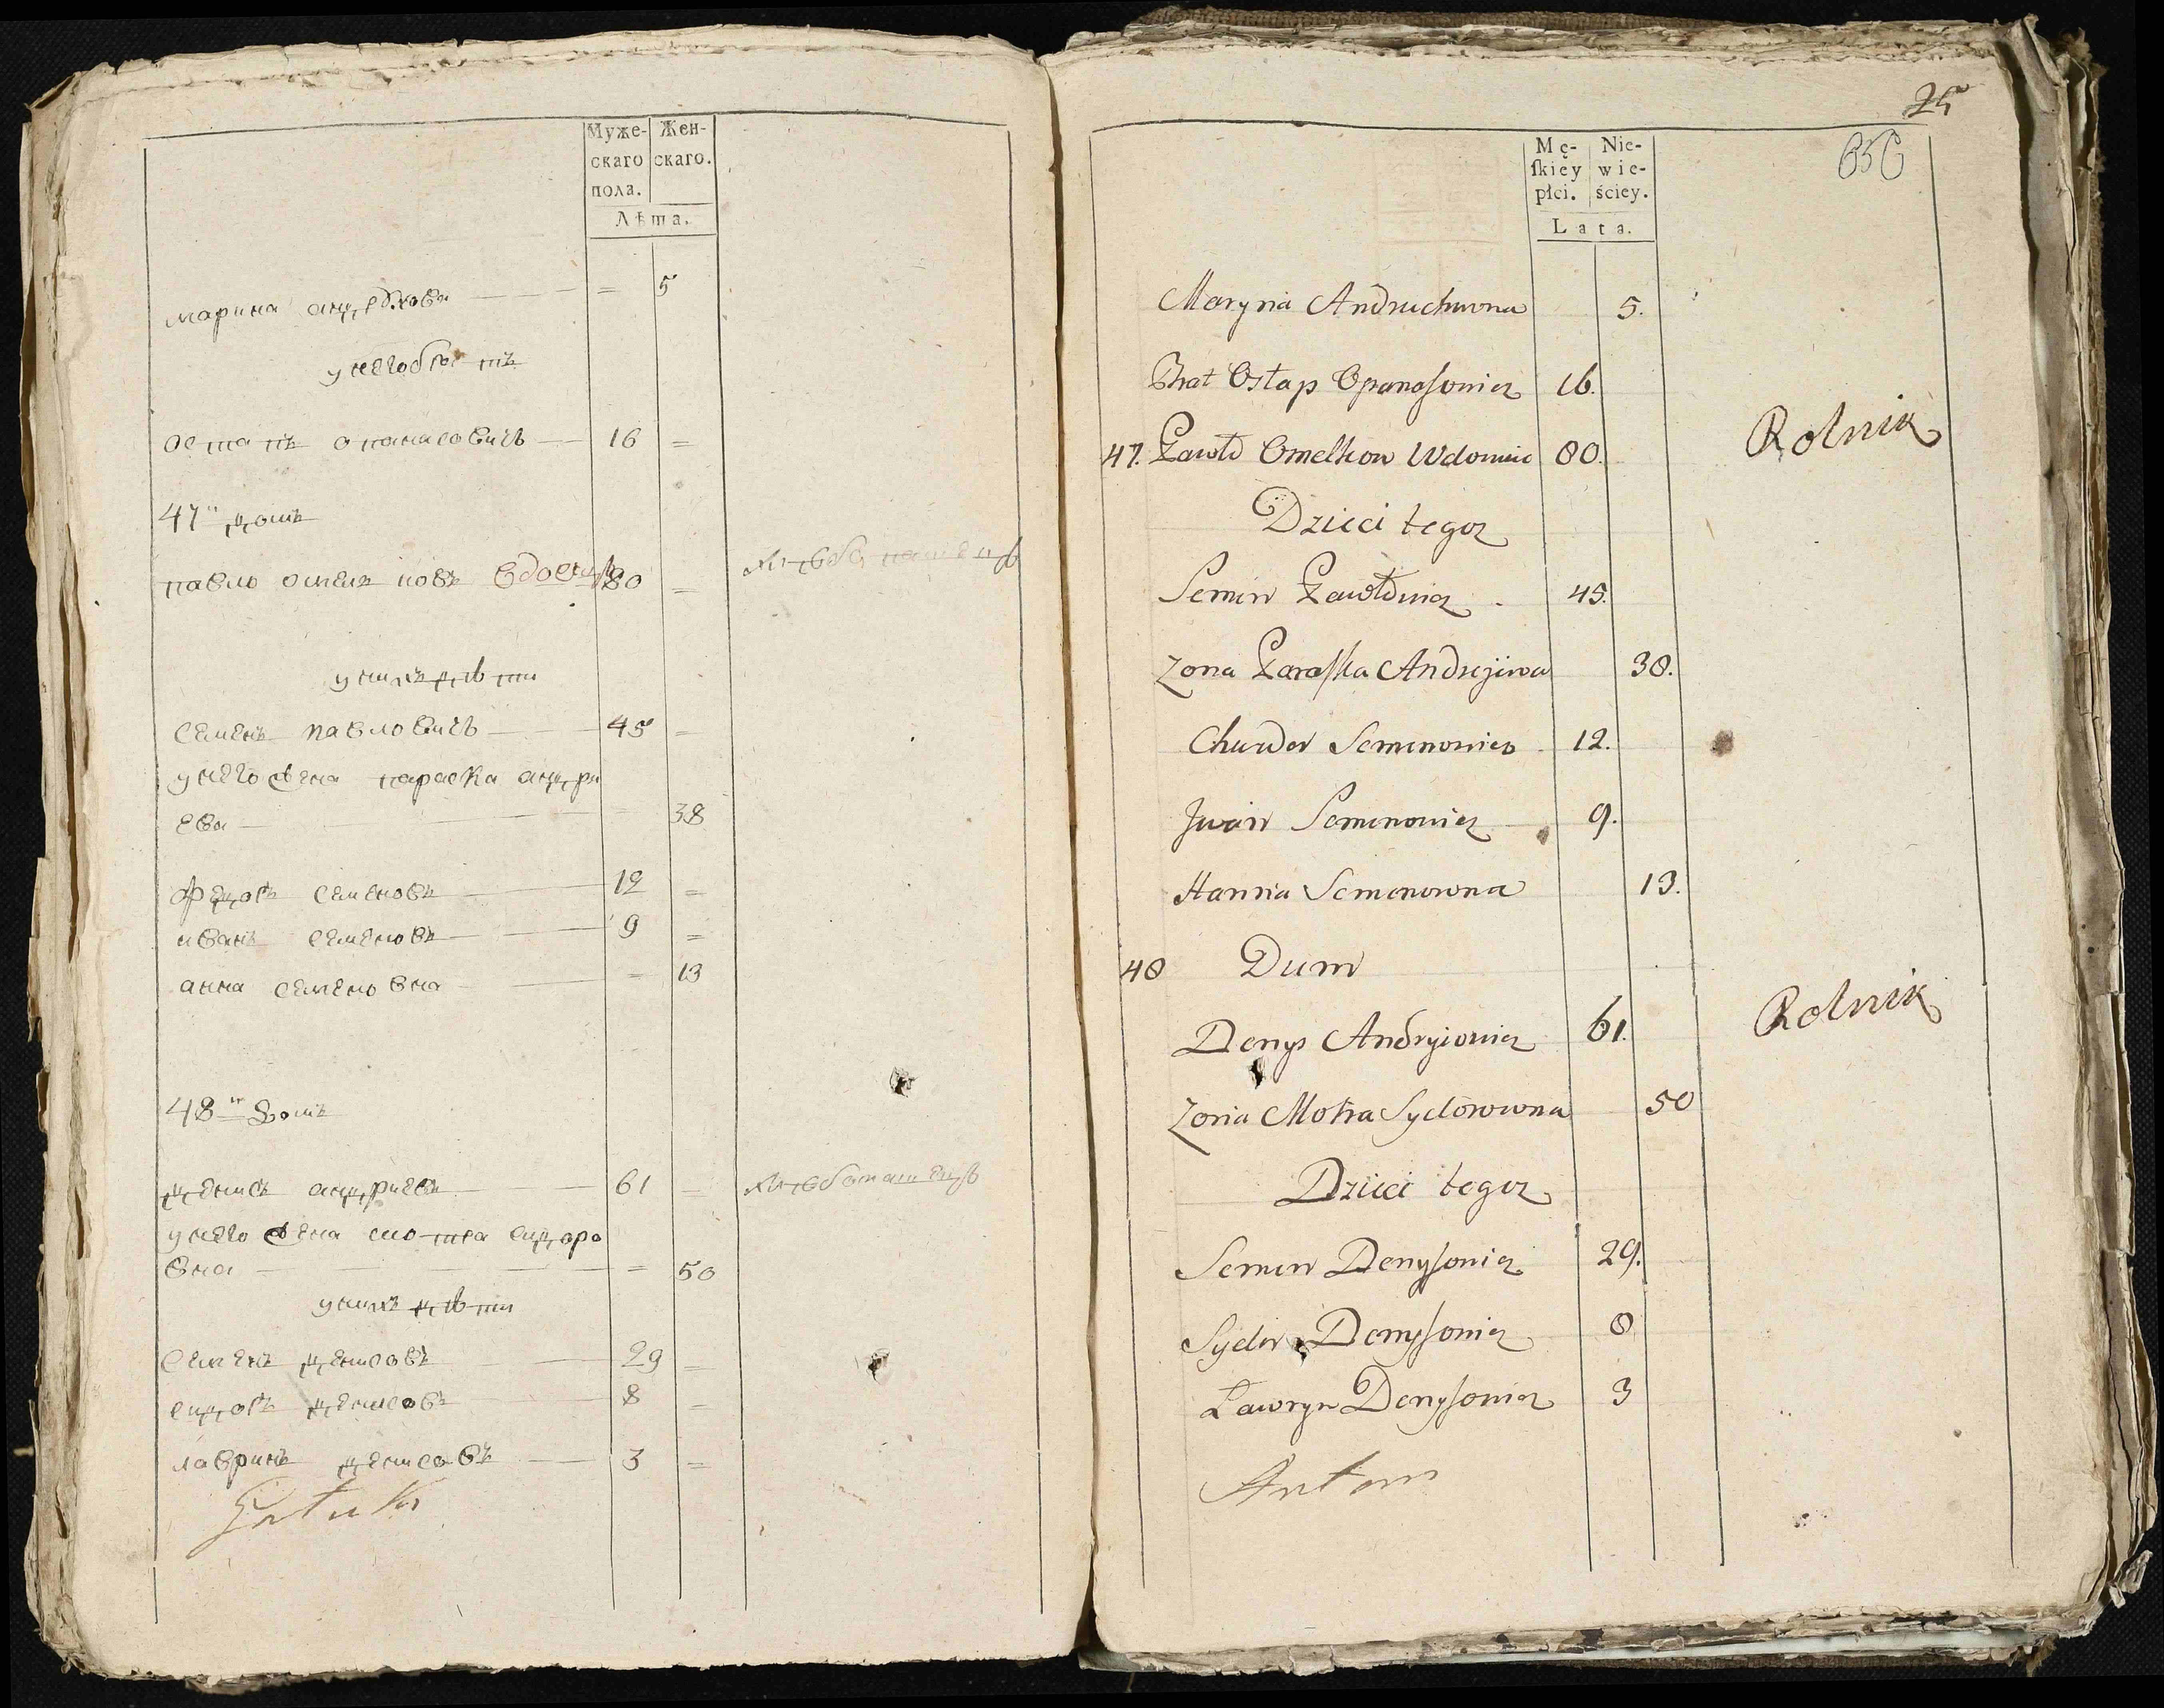 Муже-
скаго
пола.
Жен-
скаго.
Лѣта.
марина андрѣхова — = 5
у него братъ
остапъ опанасовичъ — 16 =
47й домъ
павло омелковъ вдовецъ 80 = хлѣбопашецъ
у нихъ дѣти
семенъ павловичъ — 45 =
у него жена параска андри
ева — = 38
федоръ семеновъ — 12 =
иванъ семеновъ — 9 =
анна семеновна — = 13
48й домъ
денисъ андриевъ — 61 = хлѣбопашецъ
у него жена мотра сидоро
вна — = 50
у нихъ дѣти
семенъ денисовъ — 29 =
сидоръ денисовъ — 8 =
лавринъ денисовъ — 3 =
25
Mę-
ſkiey
płci.
Nie-
wie-
ściey.
Lata.
Maryna Andruchowna 5.
Brat Ostap Opanaſowicz 16.
47. Pawło Omelkow Wdowiec 80. Rolnik
Dzieci tegoz
Semen Pawłowicz 45.
Zona Paraſka Andrejewa 38.
Chwedor Semenowicz 12.
Jwan Semenowicz 9.
Hanna Semenowna 13.
48 Dum
Denys Andryiowicz 61. Rolnik
Zona Motra Sydorowna 50
Dzieci tegoz
Semen Denyſowicz 29.
Sydor Denyſowicz 8
Ławryn Denyſowicz 3
Anton